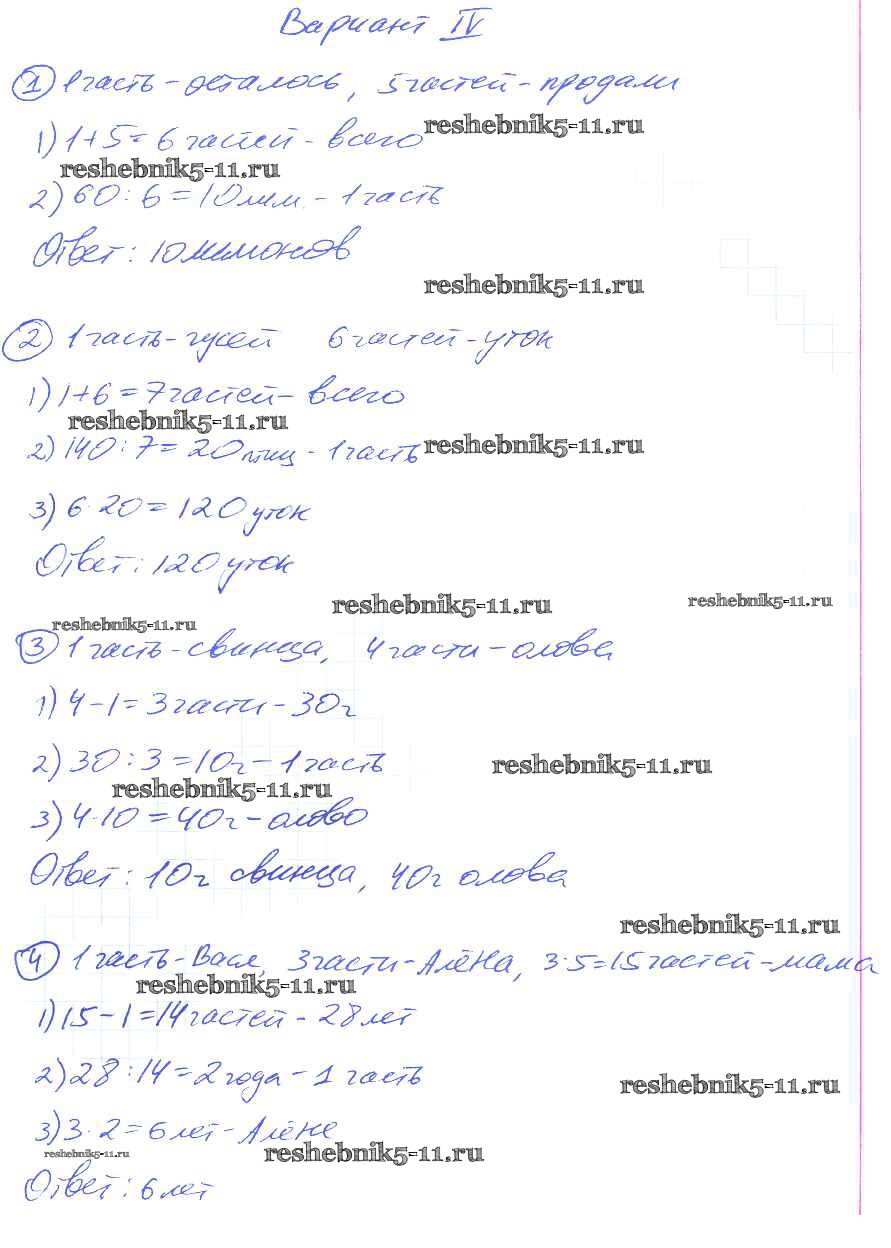 Вариант IV
1 1 часть - осталось, 5 частей - продали
reshebnik5-11.ru
1) 1+5=6 частей - всего
reshebnik5-11.ru
2) 60:6=10 лим. - 1 часть
Ответ: 10 лимонов
reshebnik5-11.ru
2 1 часть - гусей 6 частей - уток
1) 1+6=7 частей - всего
reshebnik5-11.ru
2) 140:7=20 птиц - 1 часть
reshebnik5-11.ru
3) 6·20=120 уток
Ответ: 120 уток
reshebnik5-11.ru
reshebnik5-11.ru
reshebnik5-11.ru
3 1 часть - свинца, 4 части - олова
1) 4-1=3 части - 30 г
2) 30:3=10 г - 1 часть
reshebnik5-11.ru
reshebnik5-11.ru
3) 4·10=40 г - олово
Ответ: 10 г свинца, 40 г олова
reshebnik5-11.ru
4 1 часть - Вася, 3 части - Алёна, 3·5=15 частей - мама
reshebnik5-11.ru
1) 15-1=14 частей - 28 лет
2) 28:14=2 года - 1 часть
reshebnik5-11.ru
3) 3·2=6 лет - Алёне
reshebnik5-11.ru
reshebnik5-11.ru
Ответ: 6 лет